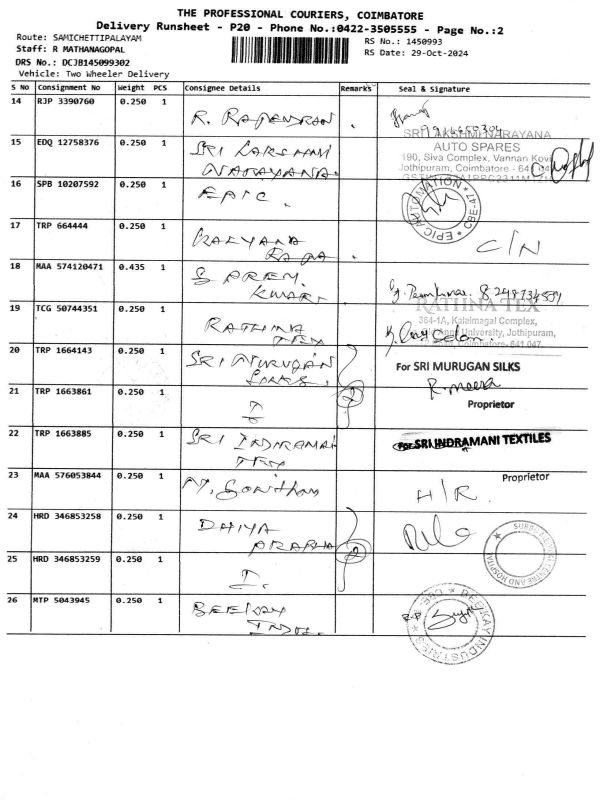 THE PROFESSIONAL COURIERS, COIMBATORE
Delivery Runsheet - P20 - Phone No.:0422-3505555 - Page No.:2
Route: SAMICHETTIPALAYAM
Staff: R MATHANAGOPAL
RS No.: 1450993
RS Date: 29-Oct-2024
DRS No.: DCJB145099302
Vehicle: Two Wheeler Delivery
S No Consignment No Weight PCS Consignee Details Remarks Seal & Signature
14 RJP 3390760 0.250 1 R. RAJENDRAN.
15 EDQ 12758376 0.250 1 SRI LAKSHMI
NARAYANA.
SRI LAKSHMI NARAYANA
AUTO SPARES
190, Siva Complex, Vannan Kovi
Jothipuram, Coimbatore - 641
16 SPB 10207592 0.250 1 EPIC.
EPIC AUTOMATION * CBE-47 *
17 TRP 664444 0.250 1 KALYANA
RAJA. C/N
18 MAA 574120471 0.435 1 S PREM
KUMAR.
19 TCG 50744351 0.250 1 RATHINA
TEX
RATHNA TEX
364-1A, Kalaimagal Complex,
University, Jothipuram,
Coimbatore- 641 047.
20 TRP 1664143 0.250 1 SRI MURUGAN
SILKS. For SRI MURUGAN SILKS
21 TRP 1663861 0.250 1 2 R. meera
Proprietor
22 TRP 1663885 0.250 1 SRI INDRAMANI
TEX For SRI INDRAMANI TEXTILES
23 MAA 576053844 0.250 1 Proprietor
H/R.
24 HRD 346853258 0.250 1 DHIYA
PRABHA 2
25 HRD 346853259 0.250 1
CENTRE AND HOSPITAL
26 MTP 5043945 0.250 1 BEEKAY
INDU.
BEEKAY INDUSTRIES * CBE *